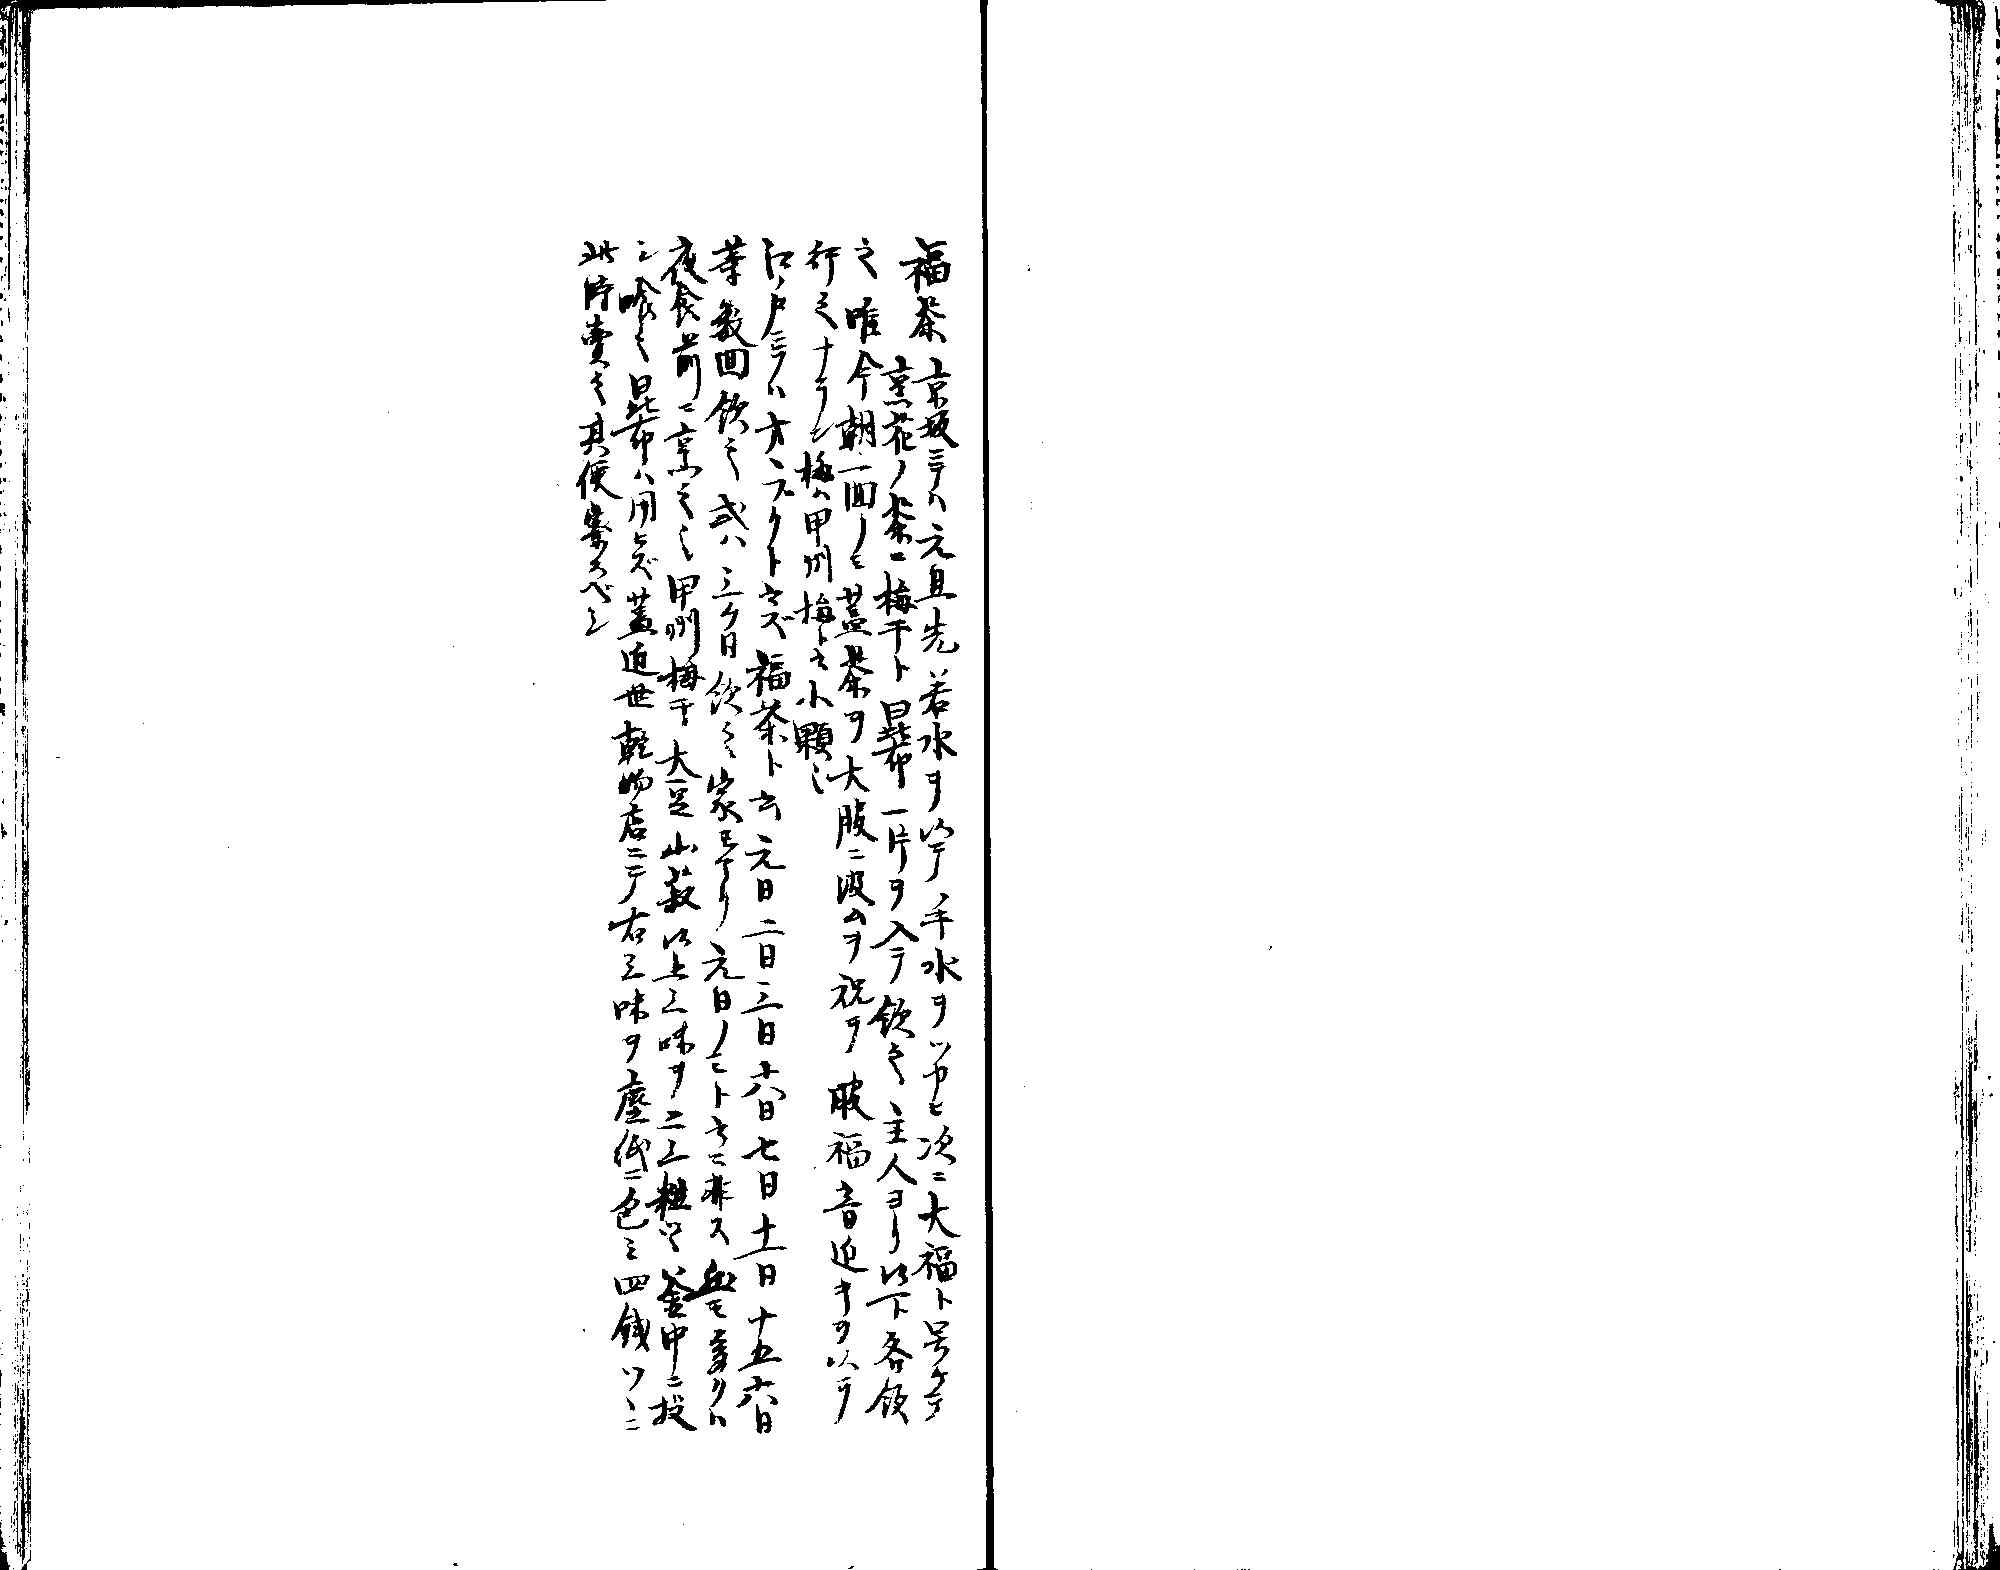 福茶 京坂ニテハ元旦先若水ヲ以テ手水ヲツカヒ次ニ大福ト号ケテ
烹花ノ茶ニ梅干ト昆布一片ヲ入テ飲之主人ヨリ以下各飲
之唯今朝一回ノミ蓋茶ヲ大服ニ汲ムヲ祝ヲ服福音近キヲ以テ
行之ナラン梅ハ甲州梅ト云小顆也
江戸ニテハ大ブクト云ズ福茶ト云元日二日三日六日七日十一日十五六日
等数回飲之或ハ三ケ日飲之家モアリ元日ノミト云ニ非ス
夜食前ニ烹之也甲州梅干大豆山菽以上三味ヲ二三粒ツヽ釜中ニ投
ジ喰之昆布ハ用ヒズ蓋近世乾物店ニテ右三味ヲ塵紙ニ包ミ四銭ツヽニ
此時売之其便案スベシ